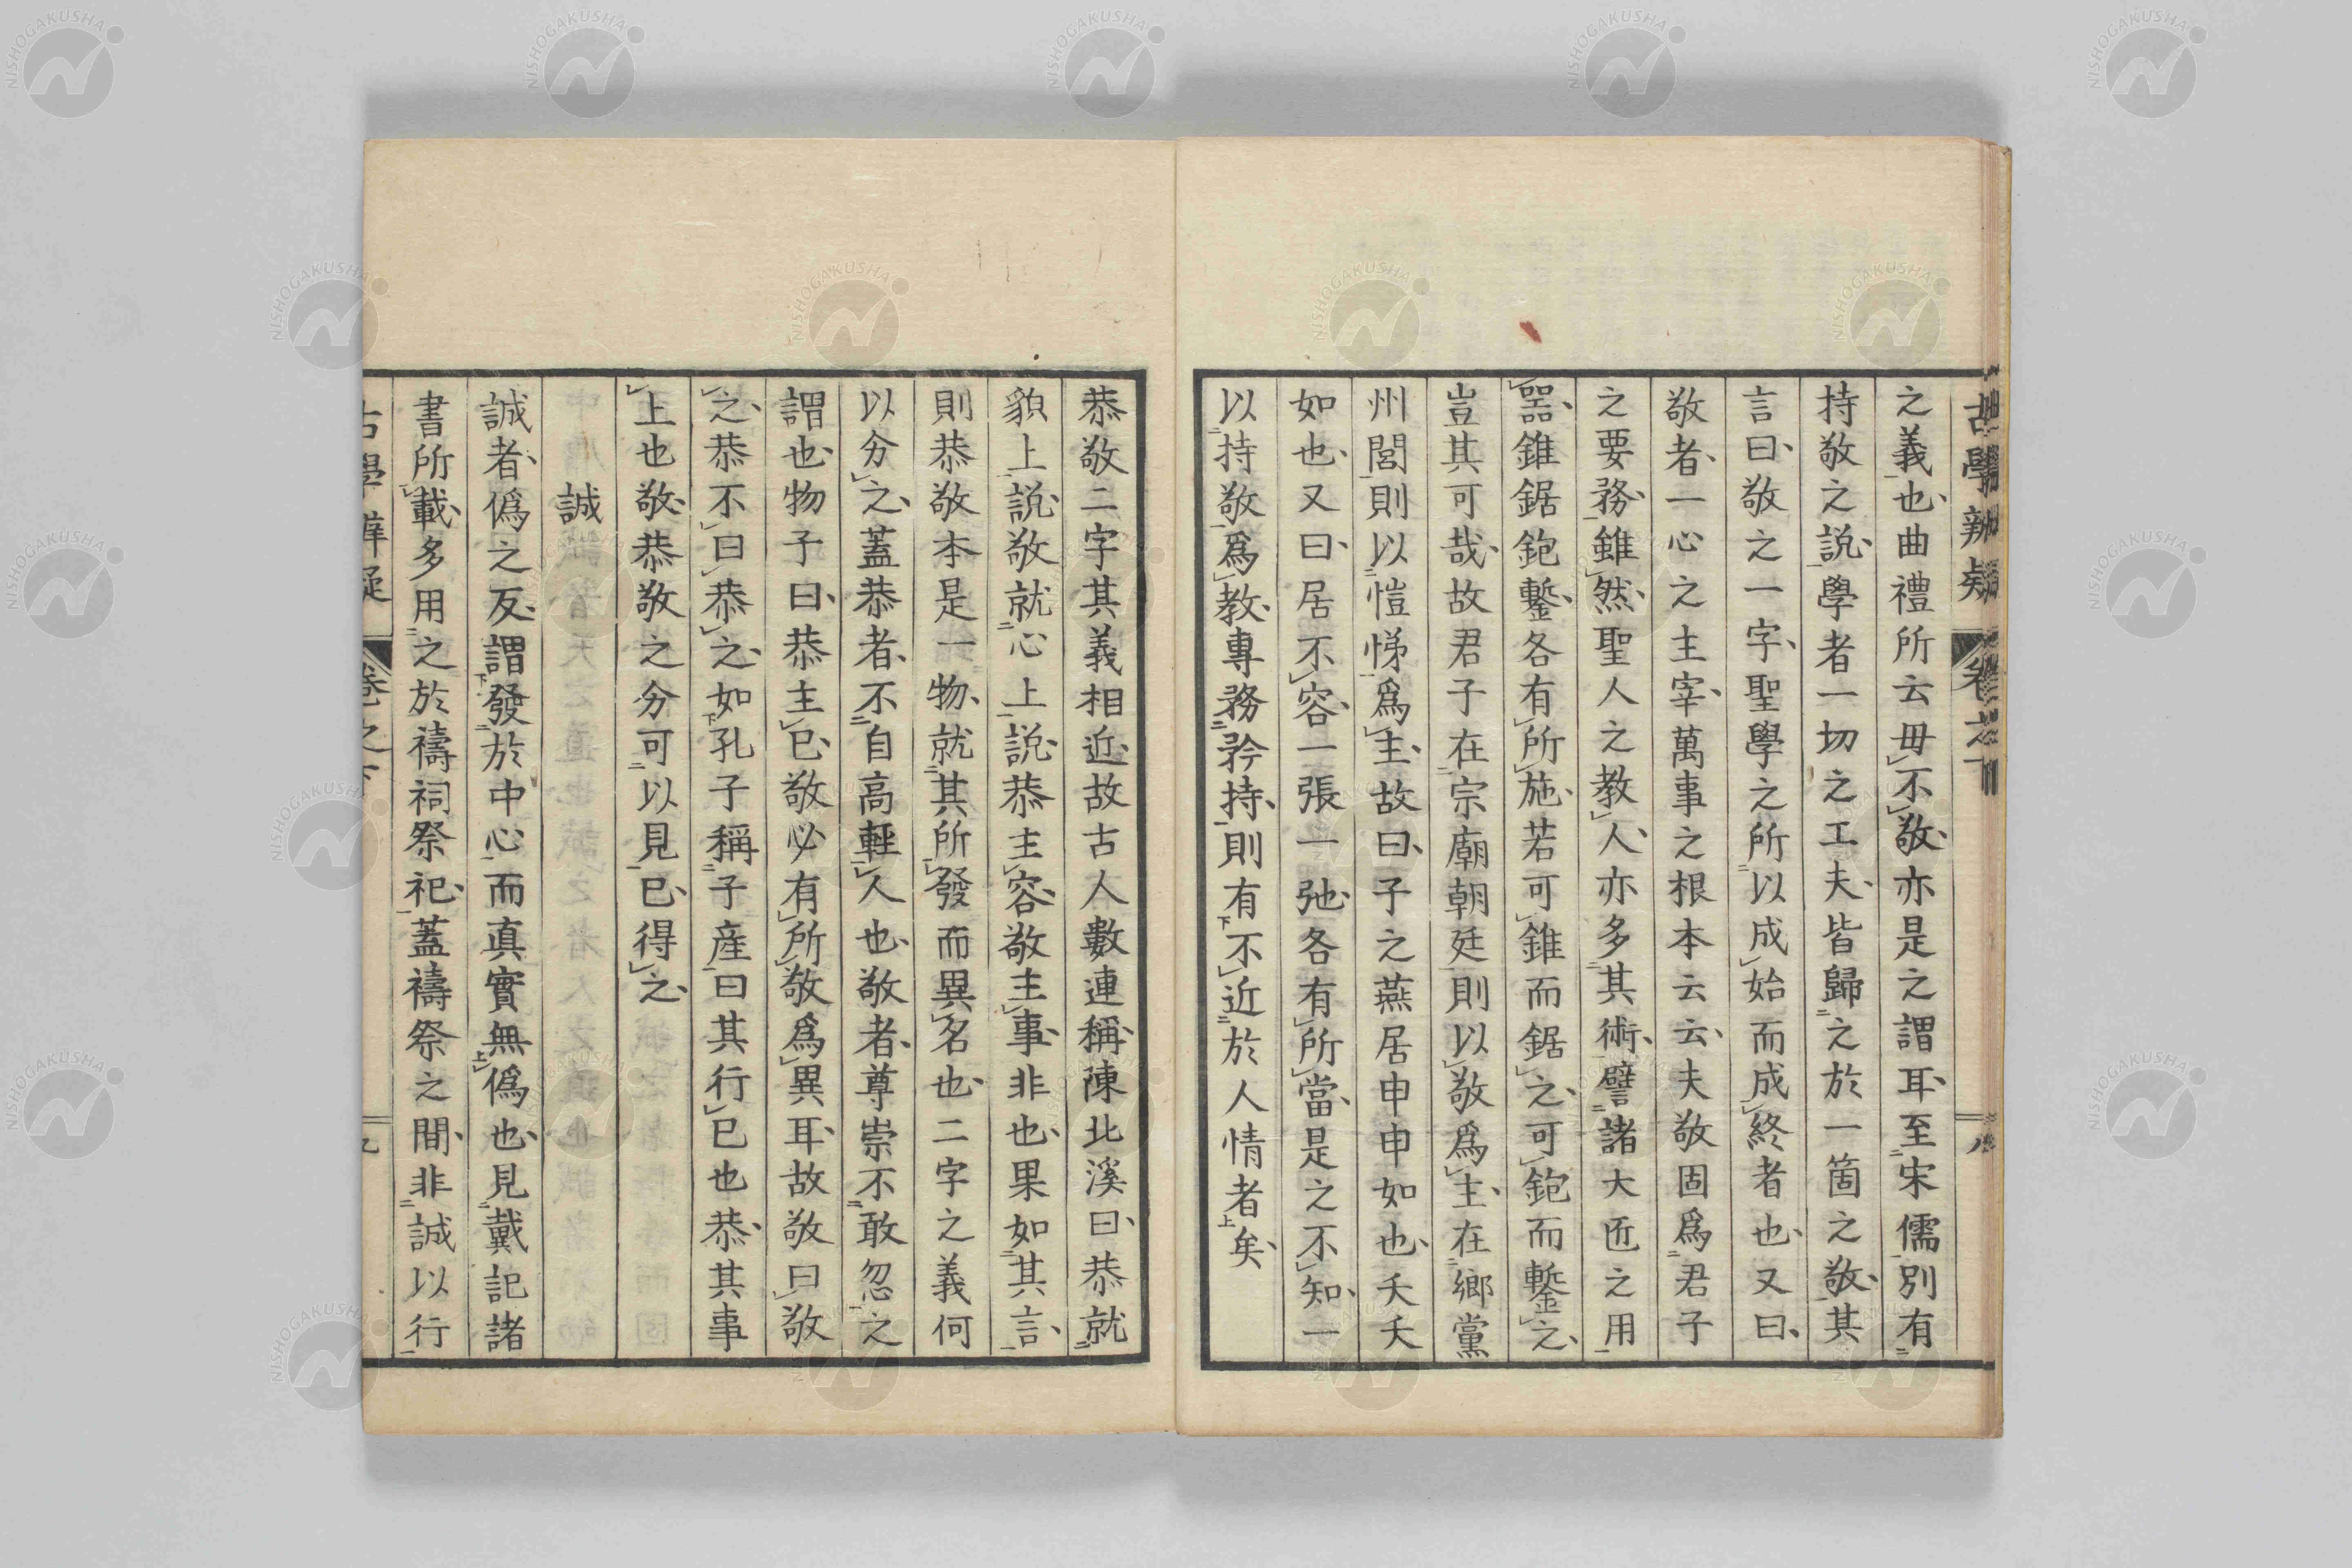 古學辨疑
之義也曲禮所云毋不敬亦是之謂耳至宋儒別有
持敬之説學者一切之工夫皆歸之於一箇之敬其
言曰敬之一字聖學之所以成始而成終者也又曰
敬者一心之主宰萬事之根本云云夫敬固爲君子
之要務雖然聖人之教人亦多其術譬諸大匠之用
器錐鋸鉋鏨各有所施若可錐而鋸之可鉋而鏨之
豈其可哉故君子在宗廟朝廷則以敬爲主在鄉黨
州閭則以愷悌爲主故曰子之燕居申申如也夭夭
如也又曰居不容一張一弛各有所當是之不知一
以持敬爲教專務矜持則有不近於人情者矣
恭敬二字其義相近故古人數連稱陳北溪曰恭就
貌上説敬就心上説恭主容敬主事非也果如其言
則恭敬本是一物就其所發而異名也二字之義何
以分之蓋恭者不自高輕人也敬者尊崇不敢忽之
謂也物子曰恭主已敬必有所敬爲異耳故敬曰敬
之恭不曰恭之如孔子稱子産曰其行已也恭其事
上也敬恭敬之分可以見已得之
誠
誠者僞之反謂發於中心而真實無僞也見戴記諸
書所載多用之於禱祠祭祀蓋禱祭之間非誠以行
古學辨疑 卷之下 九
NISHOGAKUSHA